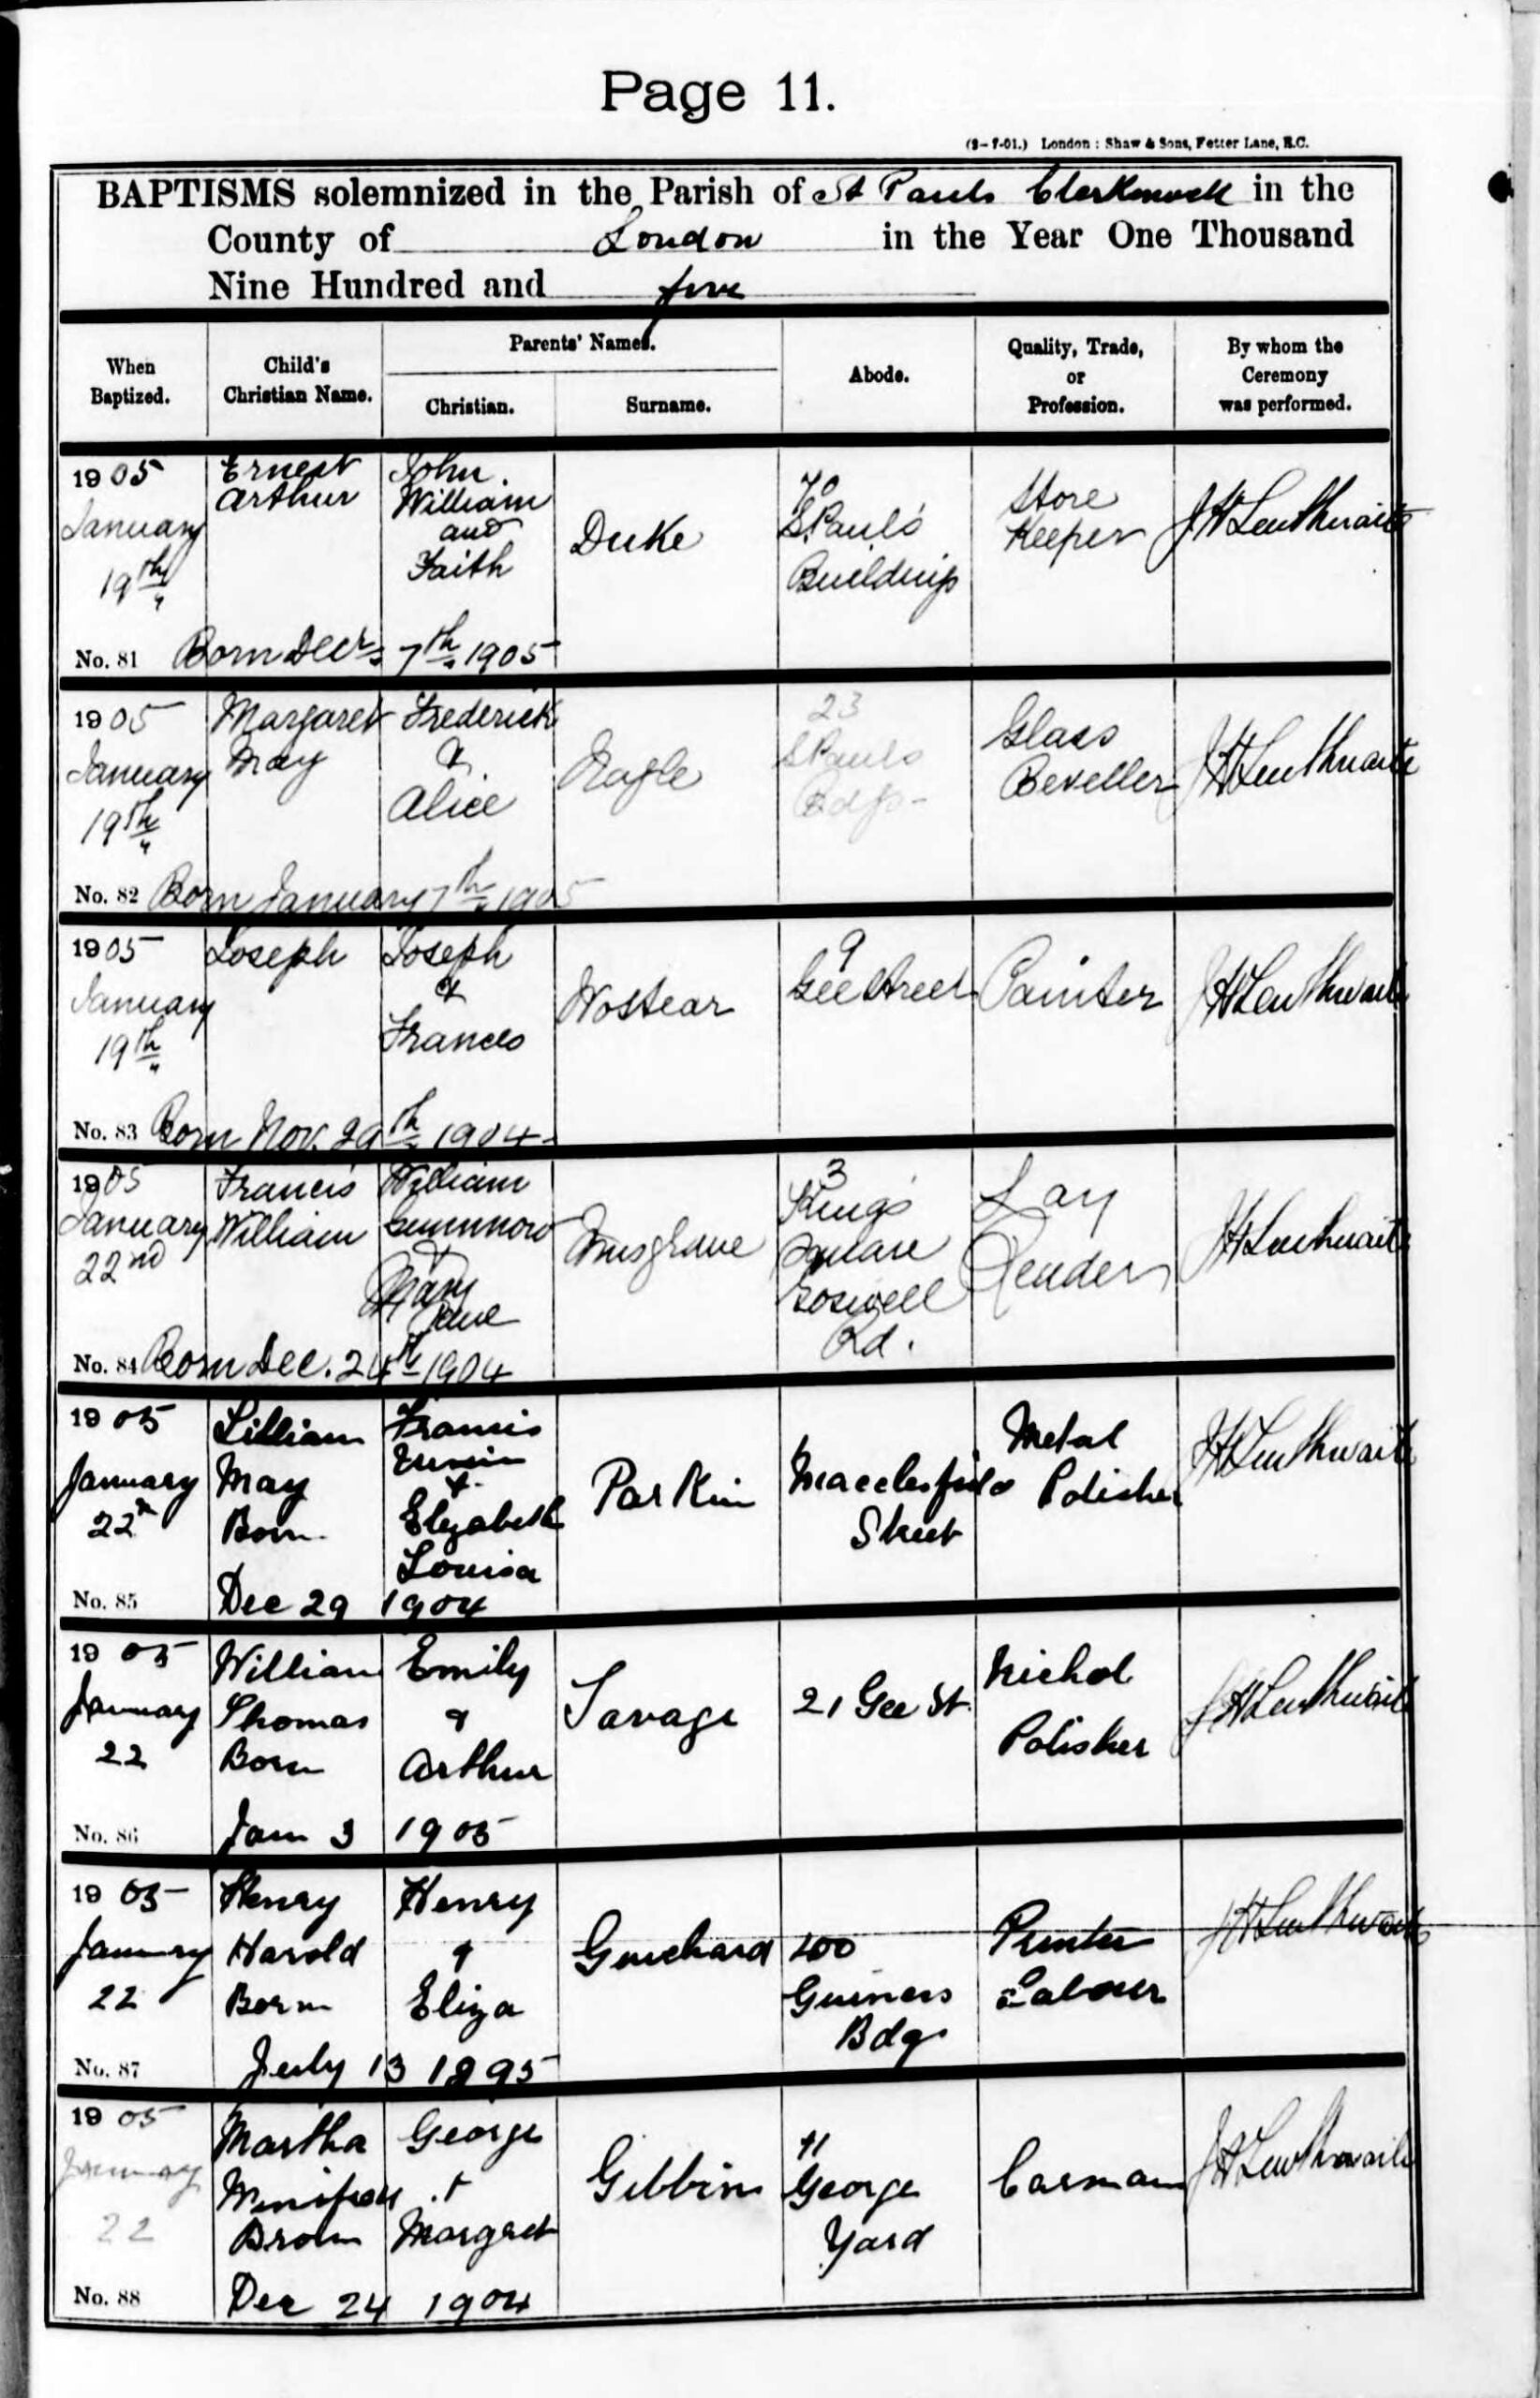 Page 11.
(9-7-01.) London : Shaw & Sons, Fetter Lane, E.C.
BAPTISMS solemnized in the Parish of St Pauls Clerkenwell in the
County of London in the Year One Thousand
Nine Hundred and five
When Baptized.
Child's Christian Name.
Parents' Names.
Christian.
Surname.
Abode.
Quality, Trade, or Profession.
By whom the Ceremony was performed.
1905
January
19th
Ernest
Arthur
John
William
and
Faith
Duke
70
St Paul's
Buildings
Store
Keeper
JH Lewthwaite
No. 81 Born Decr 7th 1905
1905
January
19th
Margaret
May
Frederick
&
Alice
Nagle
23
St Pauls
Bdgs-
Glass
Beveller
JH Lewthwaite
No. 82 Born January 7th 1905
1905
January
19th
Joseph
Joseph
&
Frances
Wostear
9
Gee Street
Painter
JH Lewthwaite
No. 83 Born Nov. 29th 1904-
1905
January
22nd
Francis
William
William
&
Mary
Jane
Musgrave
3
King's
Square
Goswell
Rd.
Lay
Reader
JH Lewthwaite
No. 84 Born Dec. 24th 1904
1905
January
22n
Lillian
May
Born
Francis
&
Elizabeth
Louisa
Parkin
Macclesfield
Street
Metal
Polisher
JH Lewthwaite
No. 85 Dec 29 1904
1905
January
22
William
Thomas
Born
Emily
&
Arthur
Savage
21 Gee St.
Nichol
Polisher
JH Lewthwaite
No. 86 Jan 3 1905
1905
January
22
Henry
Harold
Born
Henry
&
Eliza
Guichard
200
Guiness
Bdgs
Printer
Labour
JH Lewthwaite
No. 87 July 13 1895
1905
January
22
Martha
Winifred
Brom
George
+
Margret
Gibbins
11
George
Yard
Carman
JH Lewthwaite
No. 88 Dec 24 1904